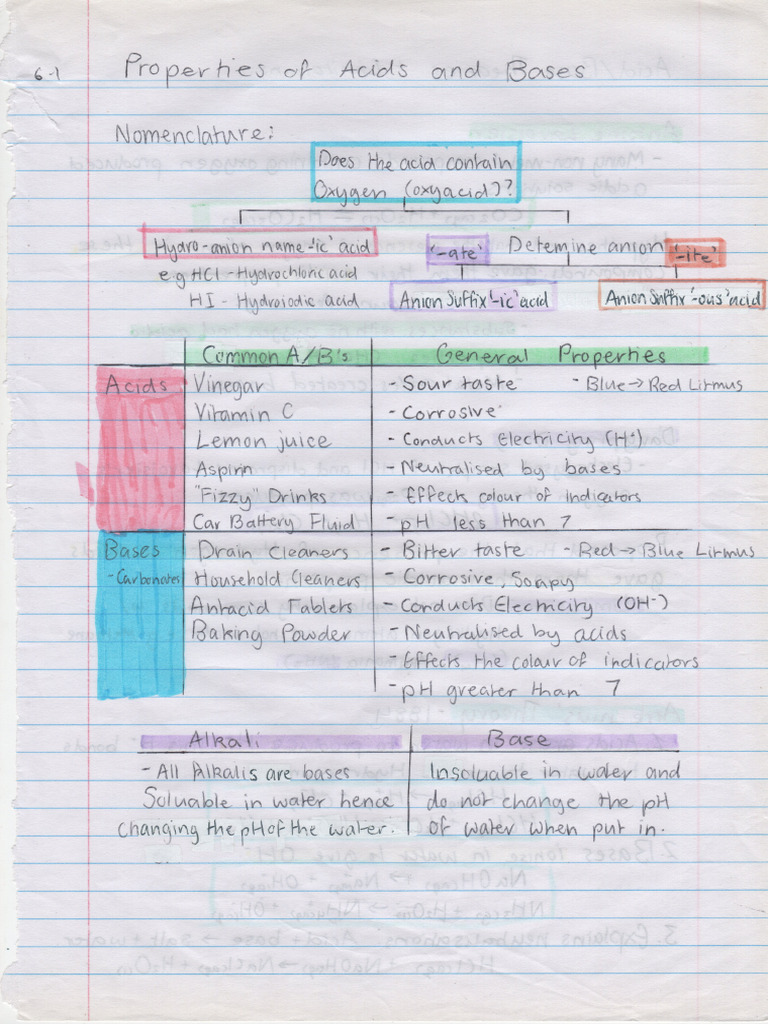 6.1 Properties of Acids and Bases
Nomenclature:
Does the acid contain
Oxygen (oxyacid)?
Hydro-anion name-'ic' acid
e.g HCl - Hydrochloric acid
HI - Hydroiodic acid
'-ate' Detemine anion '-ite'
Anion Suffix '-ic' acid
Anion Suffix '-ous' acid
Common A/B's General Properties
Acids Vinegar - Sour taste - Blue → Red Litmus
Vitamin C - Corrosive
Lemon juice - Conducts Electricity (H⁺)
Aspirin - Neutralised by bases
"Fizzy" Drinks - Effects colour of indigators
Car Battery Fluid - pH less than 7
Bases Drain Cleaners - Bitter taste - Red → Blue Litmus
- Carbonates Household Cleaners - Corrosive, Soapy
Antacid Tablets - Conducts Electricity (OH⁻)
Baking Powder - Neutralised by acids
- Effects the colour of indicators
- pH greater than 7
Alkali Base
- All Alkalis are bases Insoluable in water and
Soluable in water hence do not change the pH
changing the pH of the water. of water when put in.